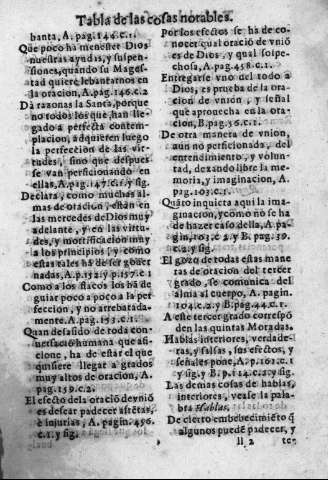 Tabla de las cosas notables.
banta, A. pag. 144. c. 1.
Que poco ha menester Dios
nuestras ayudas, y suspen-
siones, quando su Mages-
tad quiere lebantarnos en
la oracion, A. pag. 146. c. 2
Da razonas la Santa, porque
no todos los que, han lle-
gado a perfecta contem-
placion, adquieren luego
la perfeccion de las vir-
tudes, sino que despues
se van perficionando en
ellas, A. pag. 147. c. 1. y sig.
Declara, como muchas al-
mas de oracion, están en
las mercedes de Dios muy
adelante, y en las virtu-
des, y mortificacion muy
a los principios, y como
estas tales ha de ser gouer
nadas, A. p. 152. y p. 157. c. 1
Como a los flacos los há de
guiar poco a poco a la per
feccion, y no arrebatada-
mente. A. pag. 153. c. 1.
Quan desasido de toda con
uersació humana que afi-
cione, ha de estar el que
quisiere llegar a grados
muy altos de oracion, A.
pag. 159. c. 2.
El efecto de la oració de vnió
es desear padecer afrētas,
è injurias, A. pagin. 456.
c. 1. y sig.
Por los efectos se ha de co-
nocer qual oració de vnió
es de Dios, y qual sospe-
chosa, A. pag. 458. c. 1.
Entregarse vno del todo a
Dios, es prueba de la ora
cion de vnion, y señal
que aprouecha en la ora
cion, B. pag. 36. c. 1.
De otra manera de vnion,
aun no perficionada, del
entendimiento, y volun-
tad, dexando libre la me-
moria, y imaginacion, A.
pag. 103. c. 1.
Quāto inquieta aqui la ima
ginacion, y como no se ha
de hazer caso della, A. pa
gin, 103. c. 2 y B. pag. 39.
c. 2. y sig.
El gozo de todas estas mane
ras de oracion del tercer
grado, se comunica del
alma al cuerpo, A. pagin.
104. c. 2. y B. pag. 44. c. 1.
A este tercer grado correspó
den las quintas Moradas.
Hablas interiores, verdade-
ras, y falsas, sus efectos, y
señales pone, A. p. 161. c. 1
y sig. y B. p. 114. c. 2. y sig.
Las demas cosas de hablas,
interiores, vease la pala-
bra Hablas.
De cierto embebecimiēto q̄
algunos puedē padecer, y
ll 2 te-